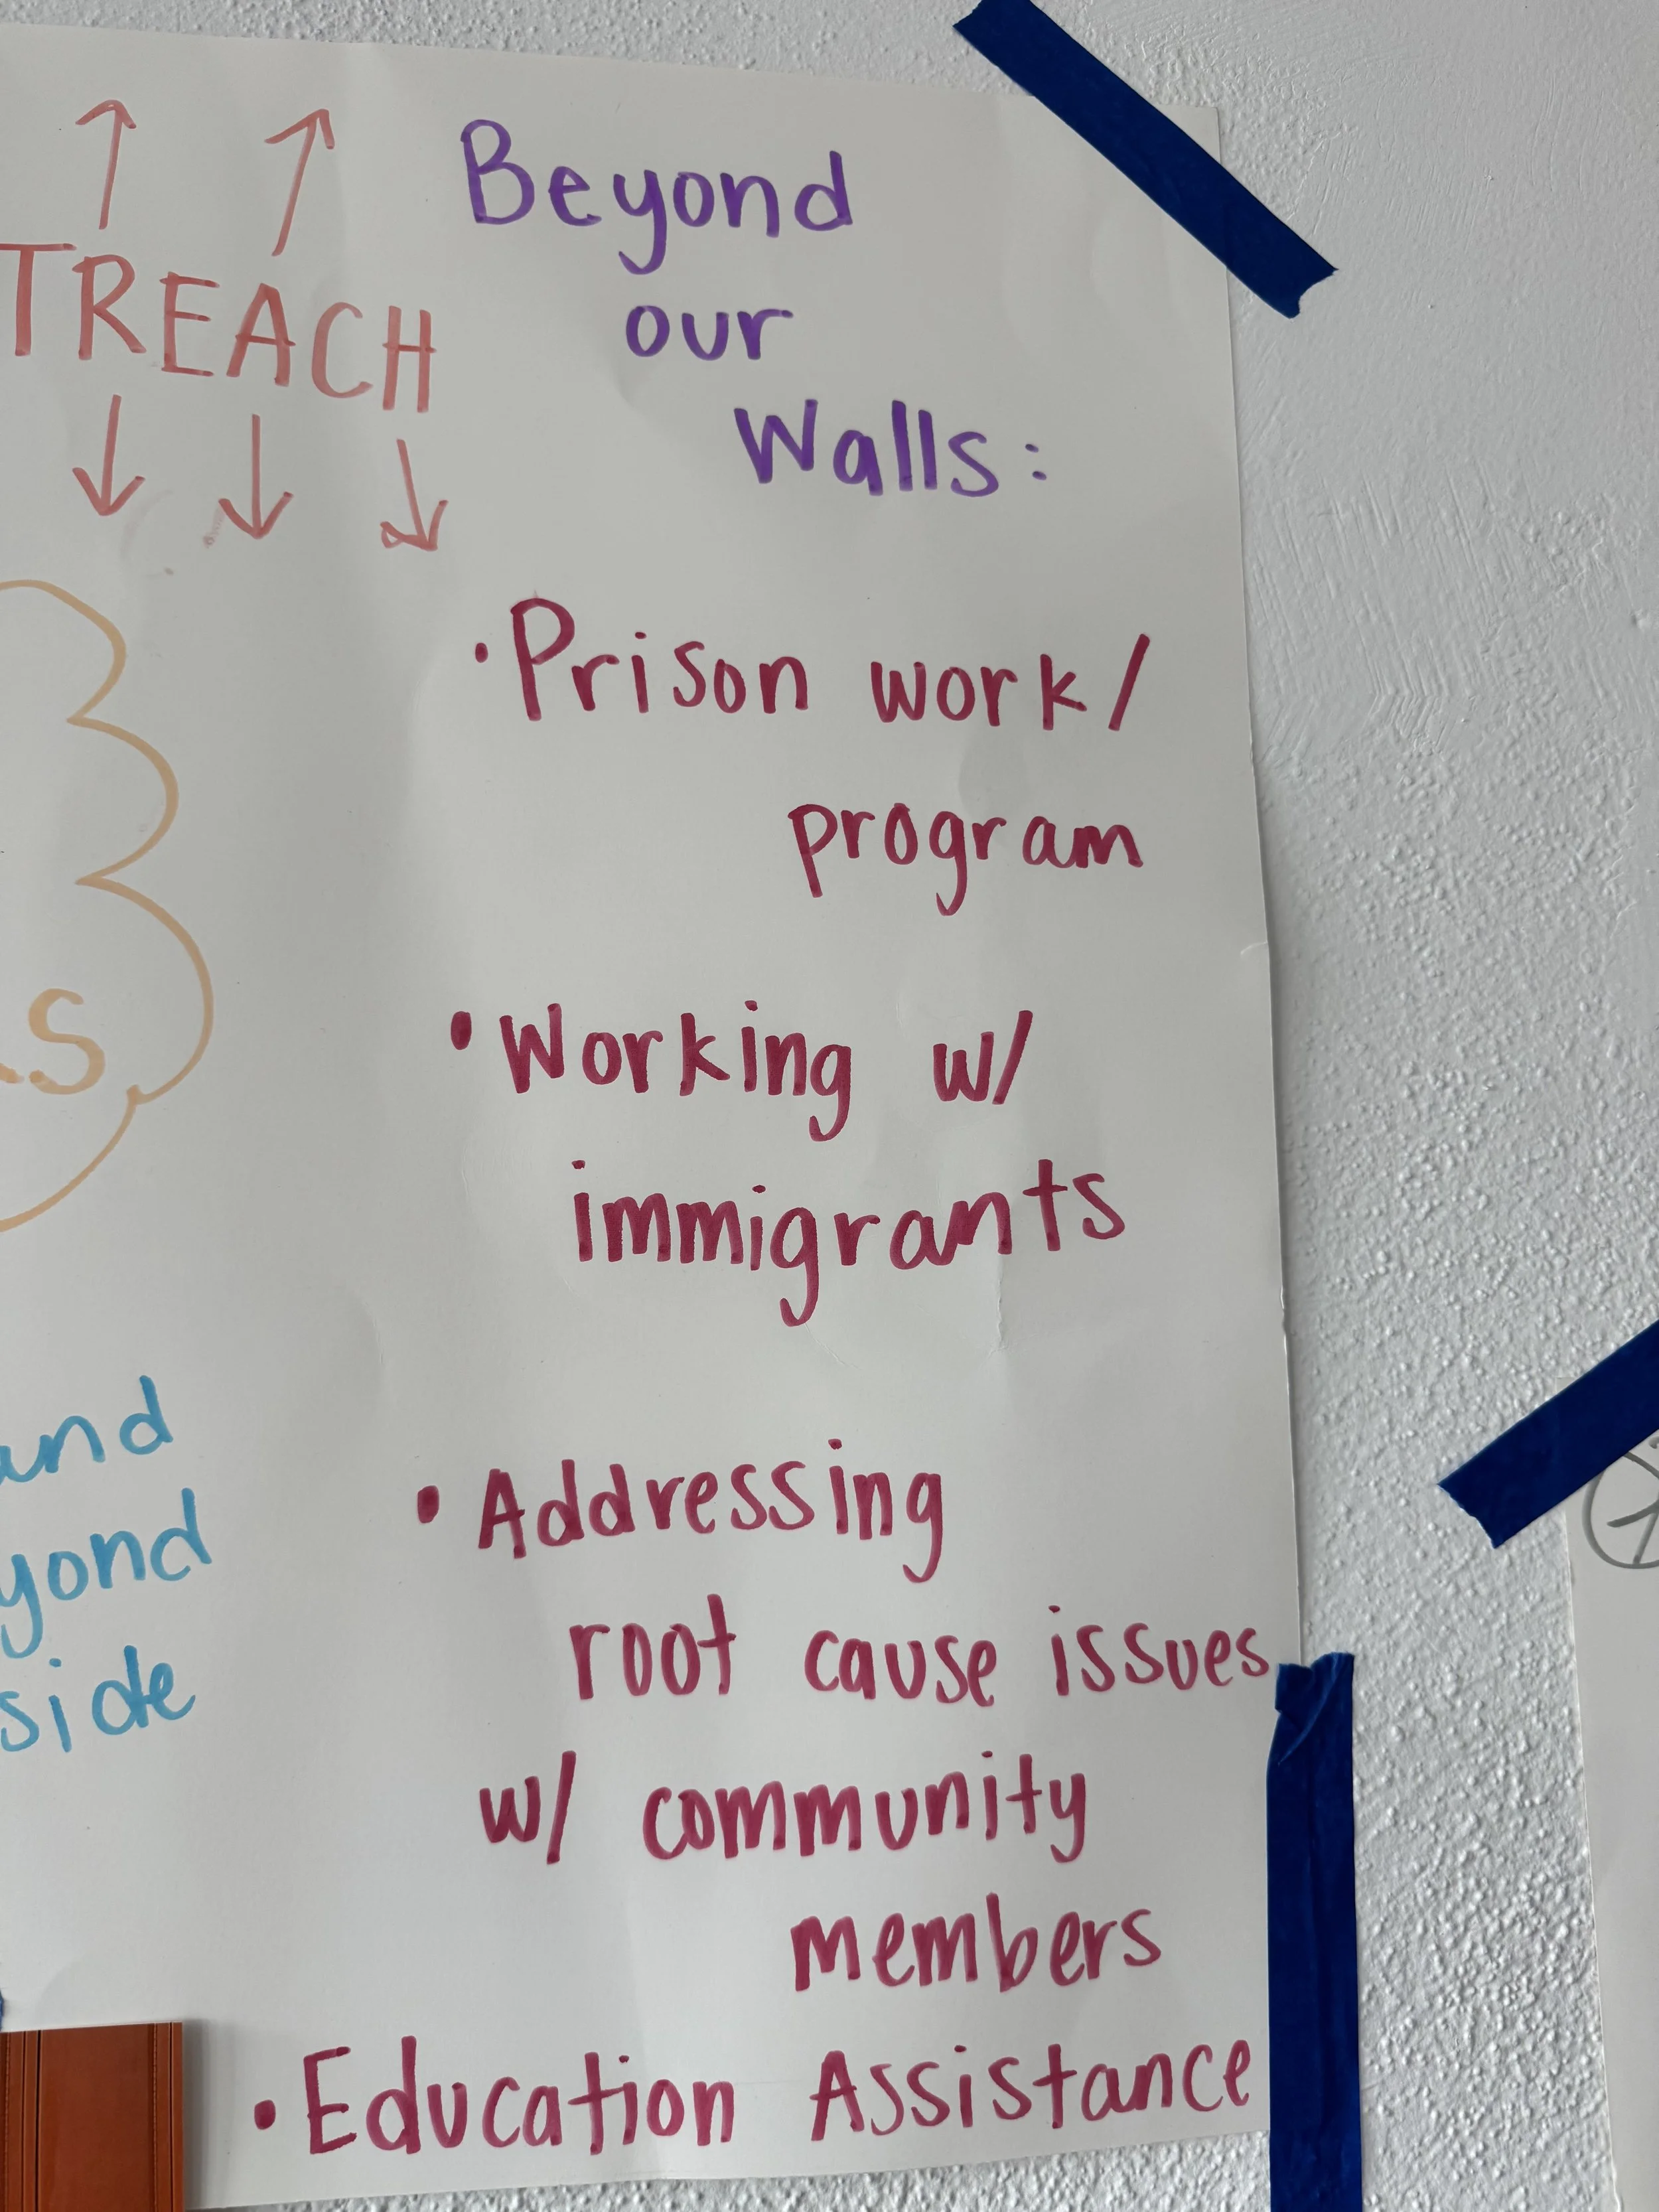 TREACH
Beyond
our
Walls:
• Prison work/
program
• Working w/
immigrants
• Addressing
root cause issues
w/ community
members
• Education Assistance
S
and
yond
side